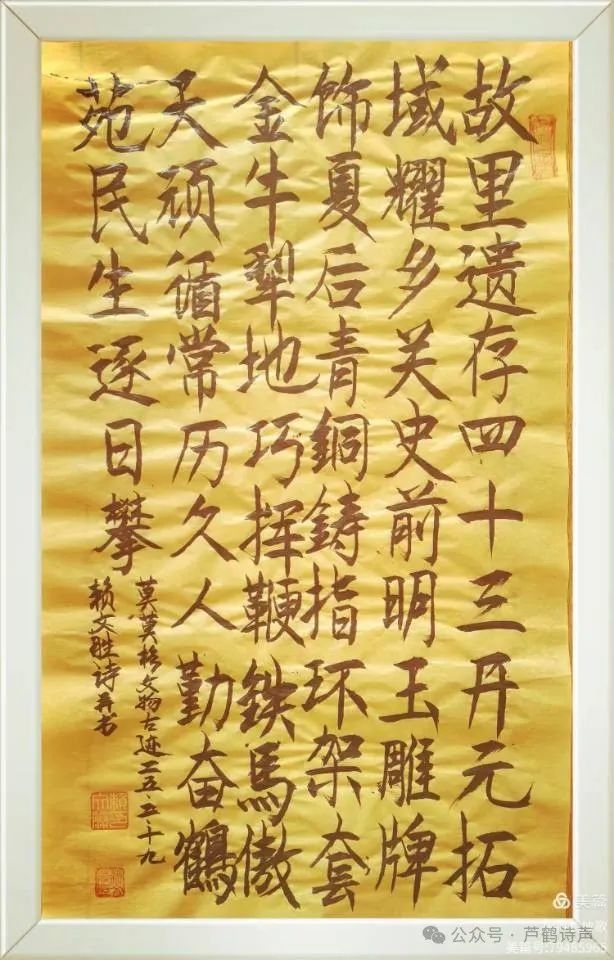 故里遗存四十三开元拓
域耀乡关史前明玉雕牌
饰夏后青銅鑄指环架套
金牛犁地巧挥鞭鉄馬傲
天顽循常历久人勤奋鶴
苑民生逐日攀
莫莫格文物古迹二五·三·十九
赖文胜诗并书
美篇
公众号 · 芦鹤诗声
美篇号:79485965